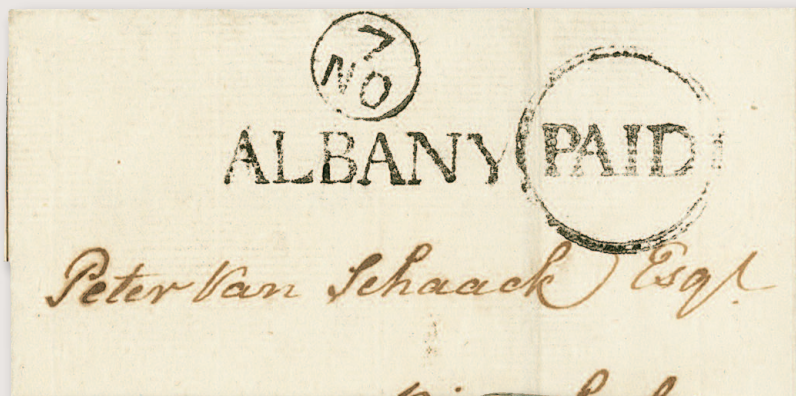 7
NO
ALBANY PAID
Peter Van Schaack Esqr